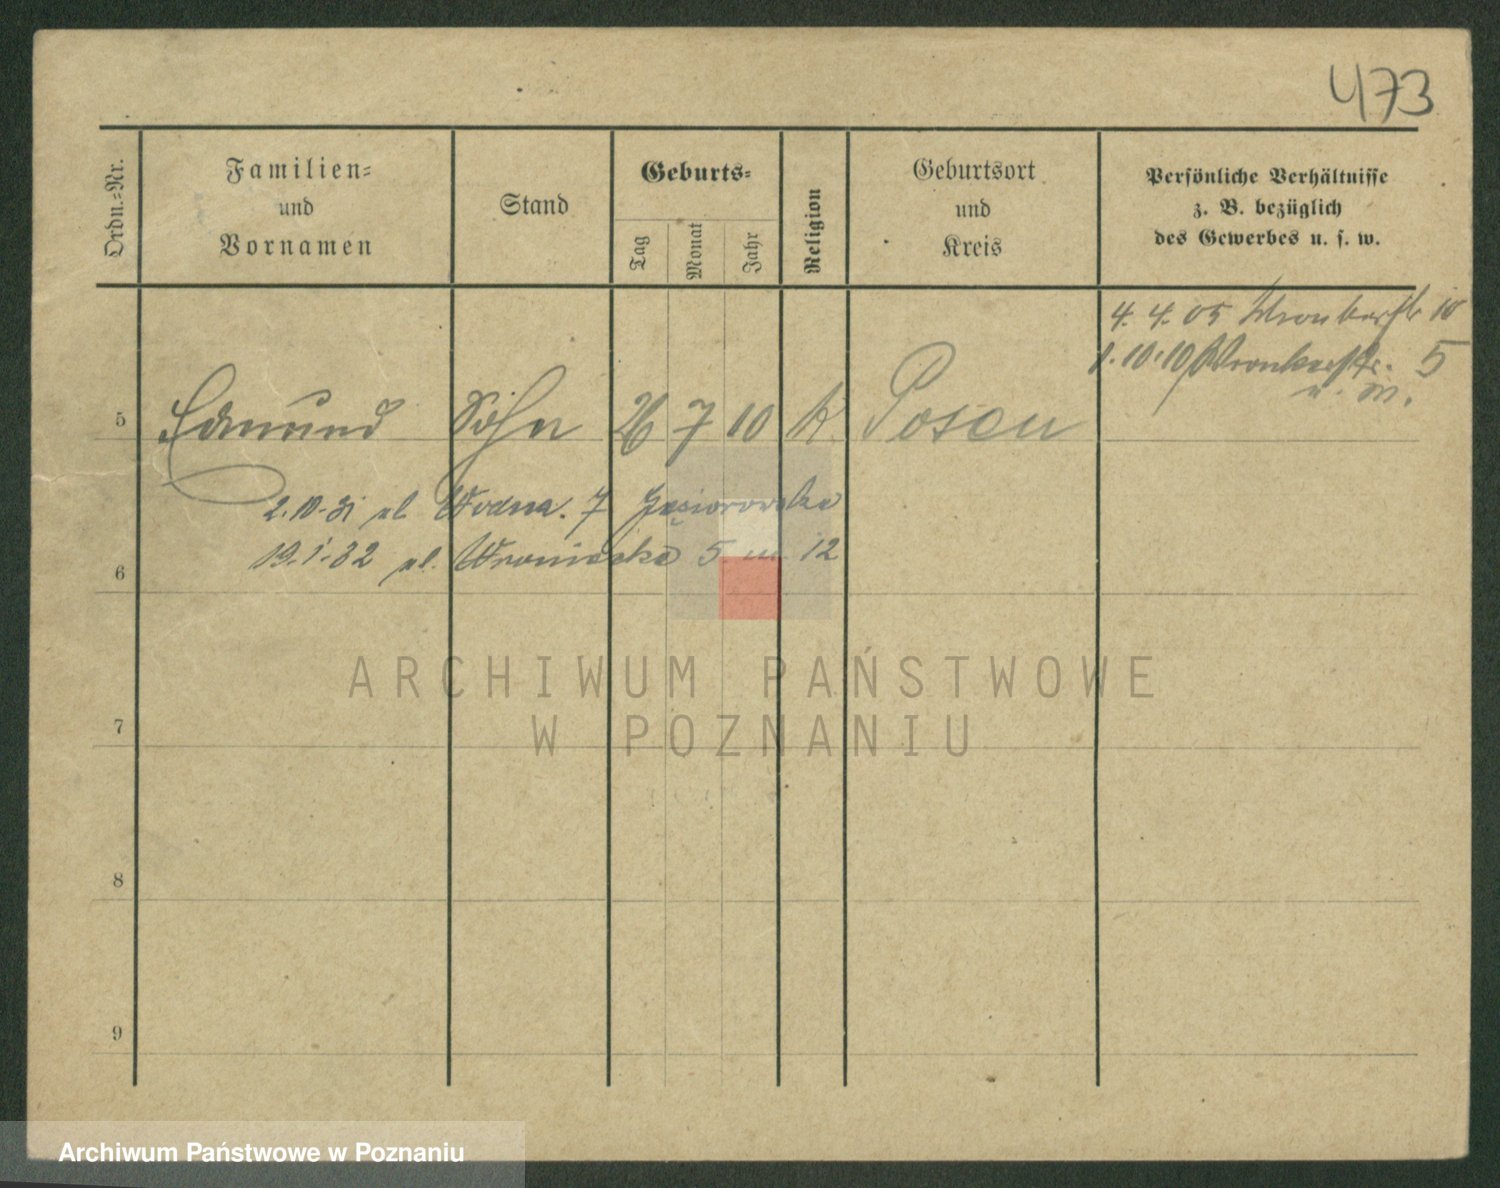 473
Ordn.-Nr.
Familien-
und
Vornamen
Stand
Geburts-
Tag
Monat
Jahr
Religion
Geburtsort
und
Kreis
Persönliche Verhältnisse
z. B. bezüglich
des Gewerbes u. s. w.
4. 4. 05 Wronkerstr 10
1. 10. 10 Wronkerstr. 5
5 Edmund Sohn 26 7 10 k. Posen
2.10.31 ul. Wodna. 7
19.1.32 ul. Wroniecka 5 m 12
6
7
8
9
ARCHIWUM PAŃSTWOWE
W POZNANIU
Archiwum Państwowe w Poznaniu